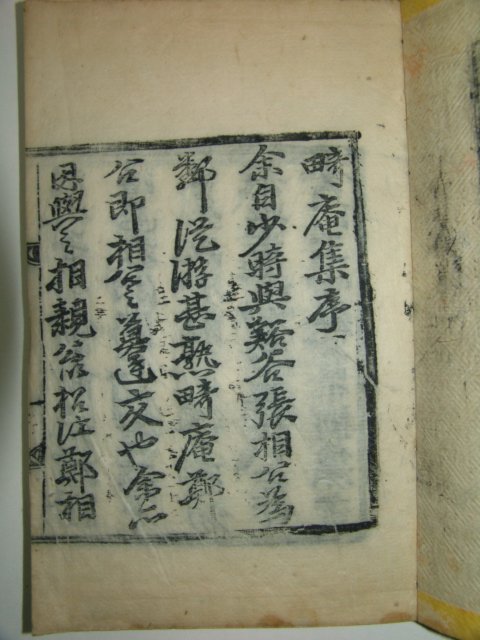 畸庵集序
余自少時與谿谷張相公爲
鄰從游甚熟畸庵鄭
公即相公莫逆交也余亦
因與之相親鄭相